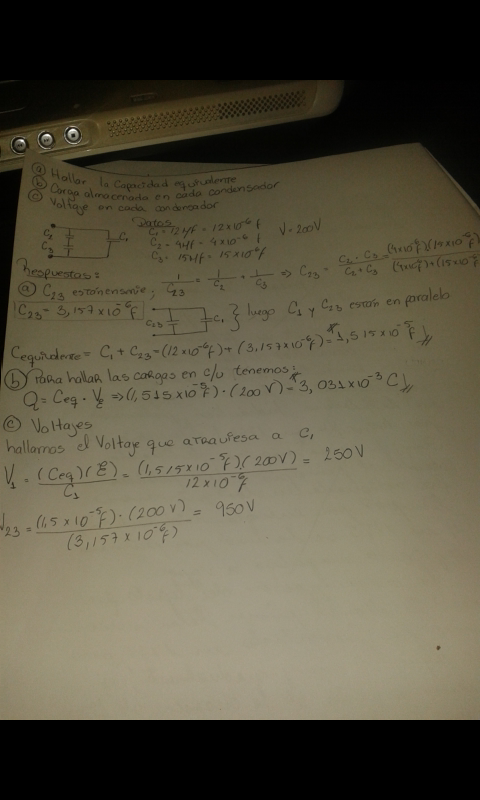 a Hallar la Capacidad equivalente
b Carga almacenada en cada condensador
c Voltaje en cada condensador
Datos
C₁ = 12 μf = 12x10⁻⁶ f
C₂ = 4μf = 4x10⁻⁶ f
C₃ = 15μf = 15x10⁻⁶ f
V = 200V
C₂
C₃
C₁
Respuestas:
a C₂₃ están en serie; 1/C₂₃ = 1/C₂ + 1/C₃ ⇒ C₂₃ = C₂ · C₃ / C₂ + C₃ = (4x10⁻⁶f)(15x10⁻⁶f) / (4x10⁻⁶f)+(15x10⁻⁶f)
C₂₃ = 3,157x10⁻⁶f
C₂₃
C₁
} luego C₁ y C₂₃ están en paralelo
Cequivalente = C₁ + C₂₃ = (12x10⁻⁶f) + (3,157x10⁻⁶f) = 1,515x10⁻⁵f
b Para hallar las cargas en c/u tenemos:
Q = Ceq · VE ⇒ (1,515x10⁻⁵f) · (200V) = 3,031x10⁻³ C
c Voltajes
hallamos el Voltaje que atraviesa a C₁
V₁ = (Ceq)(E) / C₁ = (1,515x10⁻⁵f).(200V) / 12x10⁻⁶f = 250V
V₂₃ = (1,5x10⁻⁵f) · (200V) / (3,157x10⁻⁶f) = 950V